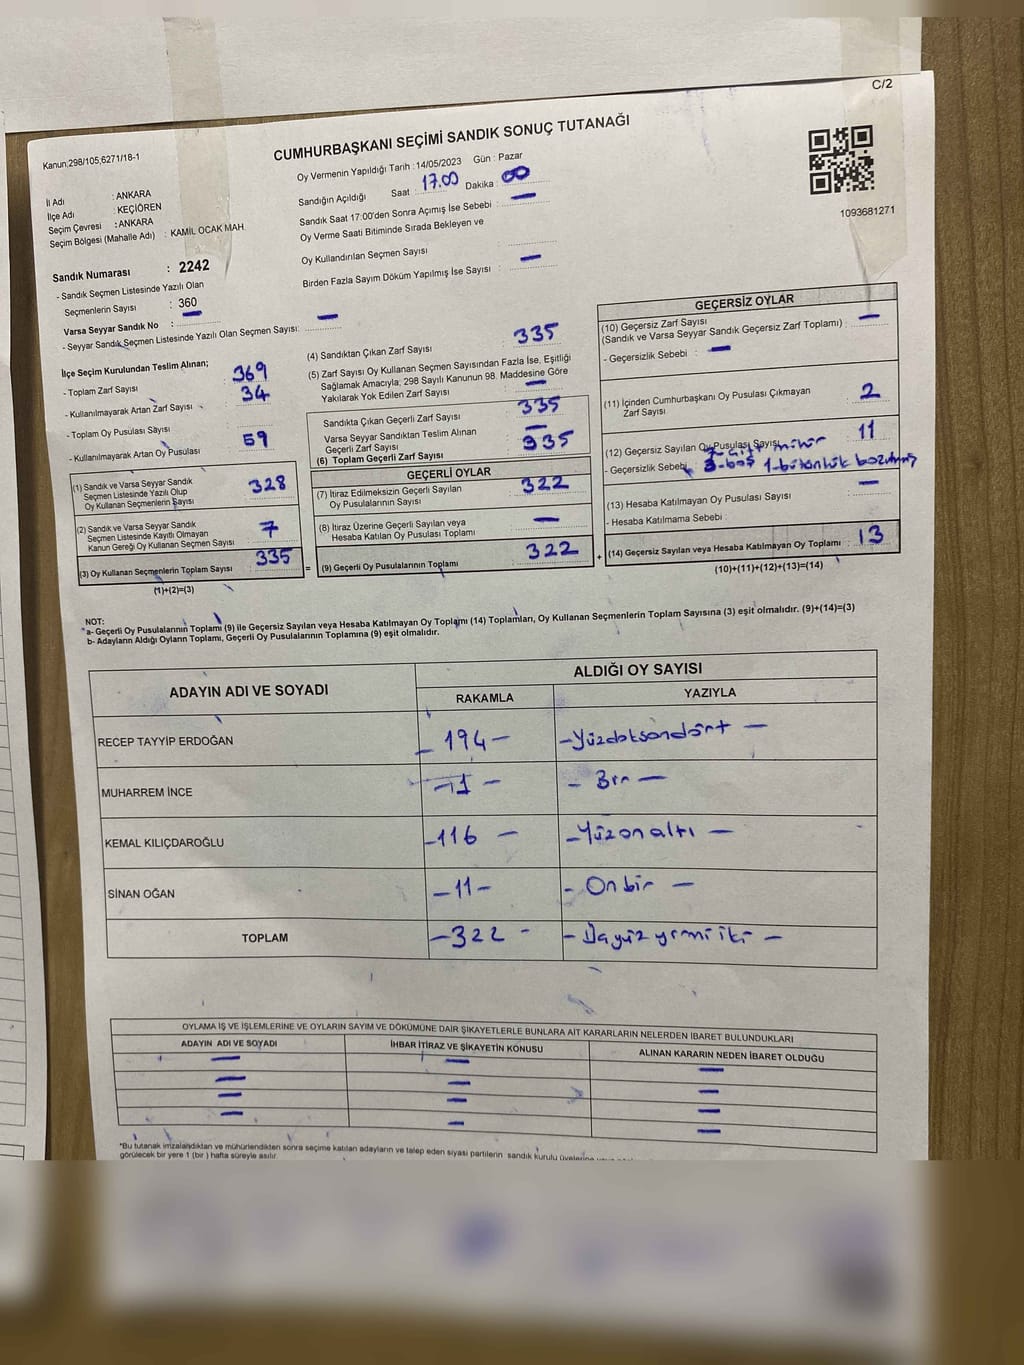 C/2
Kanun:298/105,6271/18-1
CUMHURBAŞKANI SEÇİMİ SANDIK SONUÇ TUTANAĞI
Oy Vermenin Yapıldığı Tarih : 14/05/2023 Gün : Pazar
Sandığın Açıldığı Saat 17.00 Dakika 00
Sandık Saat 17:00'den Sonra Açımış İse Sebebi : —
Oy Verme Saati Bitiminde Sırada Bekleyen ve
Oy Kullandırılan Seçmen Sayısı
Birden Fazla Sayım Döküm Yapılmış İse Sayısı : —
1093681271
İl Adı : ANKARA
İlçe Adı : KEÇİÖREN
Seçim Çevresi : ANKARA
Seçim Bölgesi (Mahalle Adı) : KAMİL OCAK MAH.
Sandık Numarası : 2242
- Sandık Seçmen Listesinde Yazılı Olan
Seçmenlerin Sayısı : 360
Varsa Seyyar Sandık No : —
- Seyyar Sandık Seçmen Listesinde Yazılı Olan Seçmen Sayısı: —
İlçe Seçim Kurulundan Teslim Alınan;
- Toplam Zarf Sayısı 369
- Kullanılmayarak Artan Zarf Sayısı 34
- Toplam Oy Pusulası Sayısı
- Kullanılmayarak Artan Oy Pusulası 59
(1) Sandık ve Varsa Seyyar Sandık
Seçmen Listesinde Yazılı Olup
Oy Kullanan Seçmenlerin Sayısı 328
(2) Sandık ve Varsa Seyyar Sandık
Seçmen Listesinde Kayıtlı Olmayan
Kanun Gereği Oy Kullanan Seçmen Sayısı 7
(3) Oy Kullanan Seçmenlerin Toplam Sayısı 335
(1)+(2)=(3)
(4) Sandıktan Çıkan Zarf Sayısı 335
(5) Zarf Sayısı Oy Kullanan Seçmen Sayısından Fazla İse, Eşitliği
Sağlamak Amacıyla, 298 Sayılı Kanunun 98. Maddesine Göre
Yakılarak Yok Edilen Zarf Sayısı : —
Sandıkta Çıkan Geçerli Zarf Sayısı 335
Varsa Seyyar Sandıktan Teslim Alınan
Geçerli Zarf Sayısı —
(6) Toplam Geçerli Zarf Sayısı 335
GEÇERLİ OYLAR
(7) İtiraz Edilmeksizin Geçerli Sayılan
Oy Pusulalarının Sayısı 322
(8) İtiraz Üzerine Geçerli Sayılan veya
Hesaba Katılan Oy Pusulası Toplamı —
= (9) Geçerli Oy Pusulalarının Toplamı 322 +
GEÇERSİZ OYLAR
(10) Geçersiz Zarf Sayısı
(Sandık ve Varsa Seyyar Sandık Geçersiz Zarf Toplamı) : —
- Geçersizlik Sebebi : —
(11) İçinden Cumhurbaşkanı Oy Pusulası Çıkmayan
Zarf Sayısı : 2
(12) Geçersiz Sayılan Oy Pusulası Sayısı : 11
mühür
- Geçersizlik Sebebi boş 1-bütünlük bozulmuş
(13) Hesaba Katılmayan Oy Pusulası Sayısı —
- Hesaba Katılmama Sebebi :
(14) Geçersiz Sayılan veya Hesaba Katılmayan Oy Toplamı : 13
(10)+(11)+(12)+(13)=(14)
NOT:
a- Geçerli Oy Pusulalarının Toplamı (9) ile Geçersiz Sayılan veya Hesaba Katılmayan Oy Toplamı (14) Toplamları, Oy Kullanan Seçmenlerin Toplam Sayısına (3) eşit olmalıdır. (9)+(14)=(3)
b- Adayların Aldığı Oyların Toplamı, Geçerli Oy Pusulalarının Toplamına (9) eşit olmalıdır.
ADAYIN ADI VE SOYADI ALDIĞI OY SAYISI
RAKAMLA YAZIYLA
RECEP TAYYİP ERDOĞAN — 194 — — Yüzdoksandört —
MUHARREM İNCE — 1 — — Bir —
KEMAL KILIÇDAROĞLU — 116 — — Yüzonaltı —
SİNAN OĞAN — 11 — — Onbir —
TOPLAM — 322 — — Üçyüz yirmi iki —
OYLAMA İŞ VE İŞLEMLERİNE VE OYLARIN SAYIM VE DÖKÜMÜNE DAİR ŞİKAYETLERLE BUNLARA AİT KARARLARIN NELERDEN İBARET BULUNDUKLARI
ADAYIN ADI VE SOYADI İHBAR İTİRAZ VE ŞİKAYETİN KONUSU ALINAN KARARIN NEDEN İBARET OLDUĞU
— — —
— — —
— — —
— — —
*Bu tutanak imzalandıktan ve mühürlendikten sonra seçime katılan adayların ve talep eden siyasi partilerin sandık kurulu üyelerine
görülecek bir yere 1 (bir) hafta süreyle asılır.